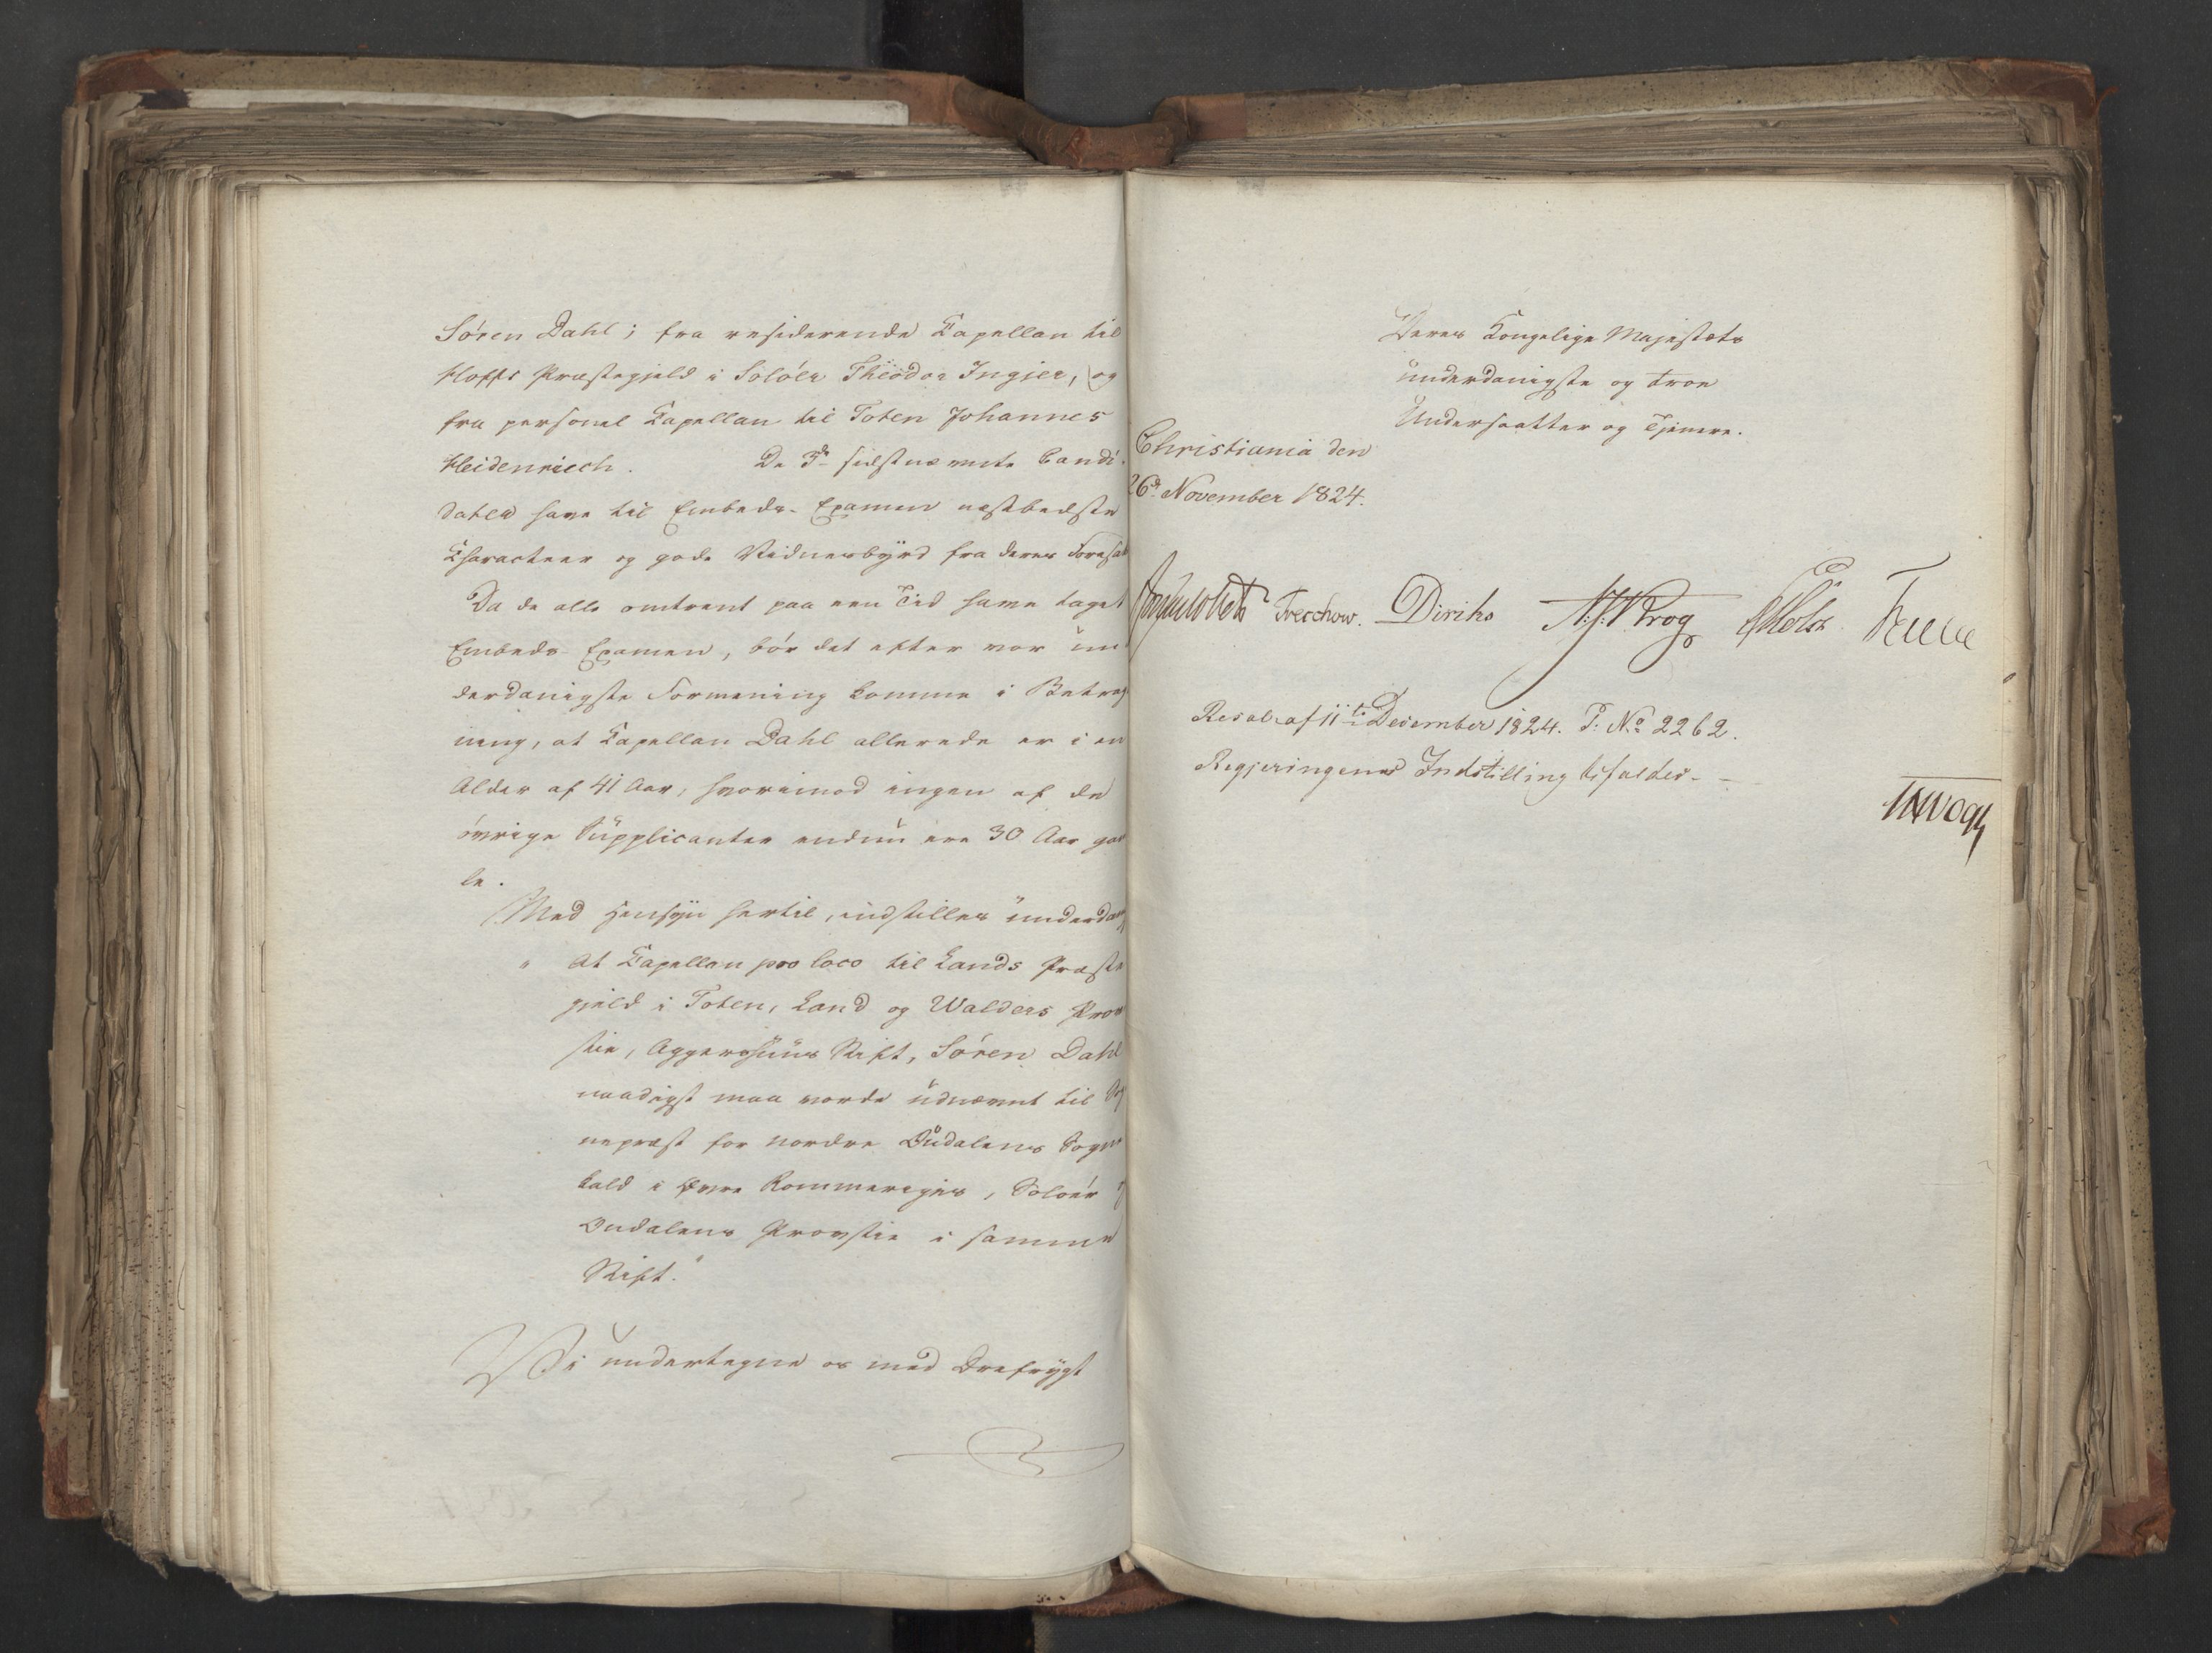 Sören Dahl; fra residerende Capellan til
Hoffs Præstegjeld i Solöer Theodor Ingier, og
fra personel Capellan til Toten Johannes
Heidenriech. De 3de sidstnævnte Candi-
dater have til Embeds-Examen næstbedste
Characteer og gode Vidnesbyrd fra deres Foresat
Da de alle omtrent paa een Tid have taget
Embeds Examen, bör det efter vor un
derdanigste Formening komme i Betrag
ning, at Capellan Dahl allerede er i en
Alder af 41 Aar, hvorimod ingen af de
övrige Supplicanter endnu ere 30 Aar gam
le.
Med Hensyn hertil, indstilles underdan
" At Capellan pro loco til Lands Præste
gjeld i Toten, Land og Walders Prov
stie, Aggershuus Stift, Sören Dahl
naadigst maa vorde udnævnt til Sog
nepræst for nordre Oudalens Sogne
kald i Övre Rommeriges, Soloer og
Oudalens Provstie i samme
Stift."
Vi undertegne os med Ærefrygt
Deres Kongelige Majestæts
underdanigste og troe
Undersaatter og Tjenere.
Christiania den
26de November 1824.
Treschow. Diriks N. J. Krog Holst
Resol. af 11te December 1824. P. No 2262.
Regjeringens Indstilling bifaldes.